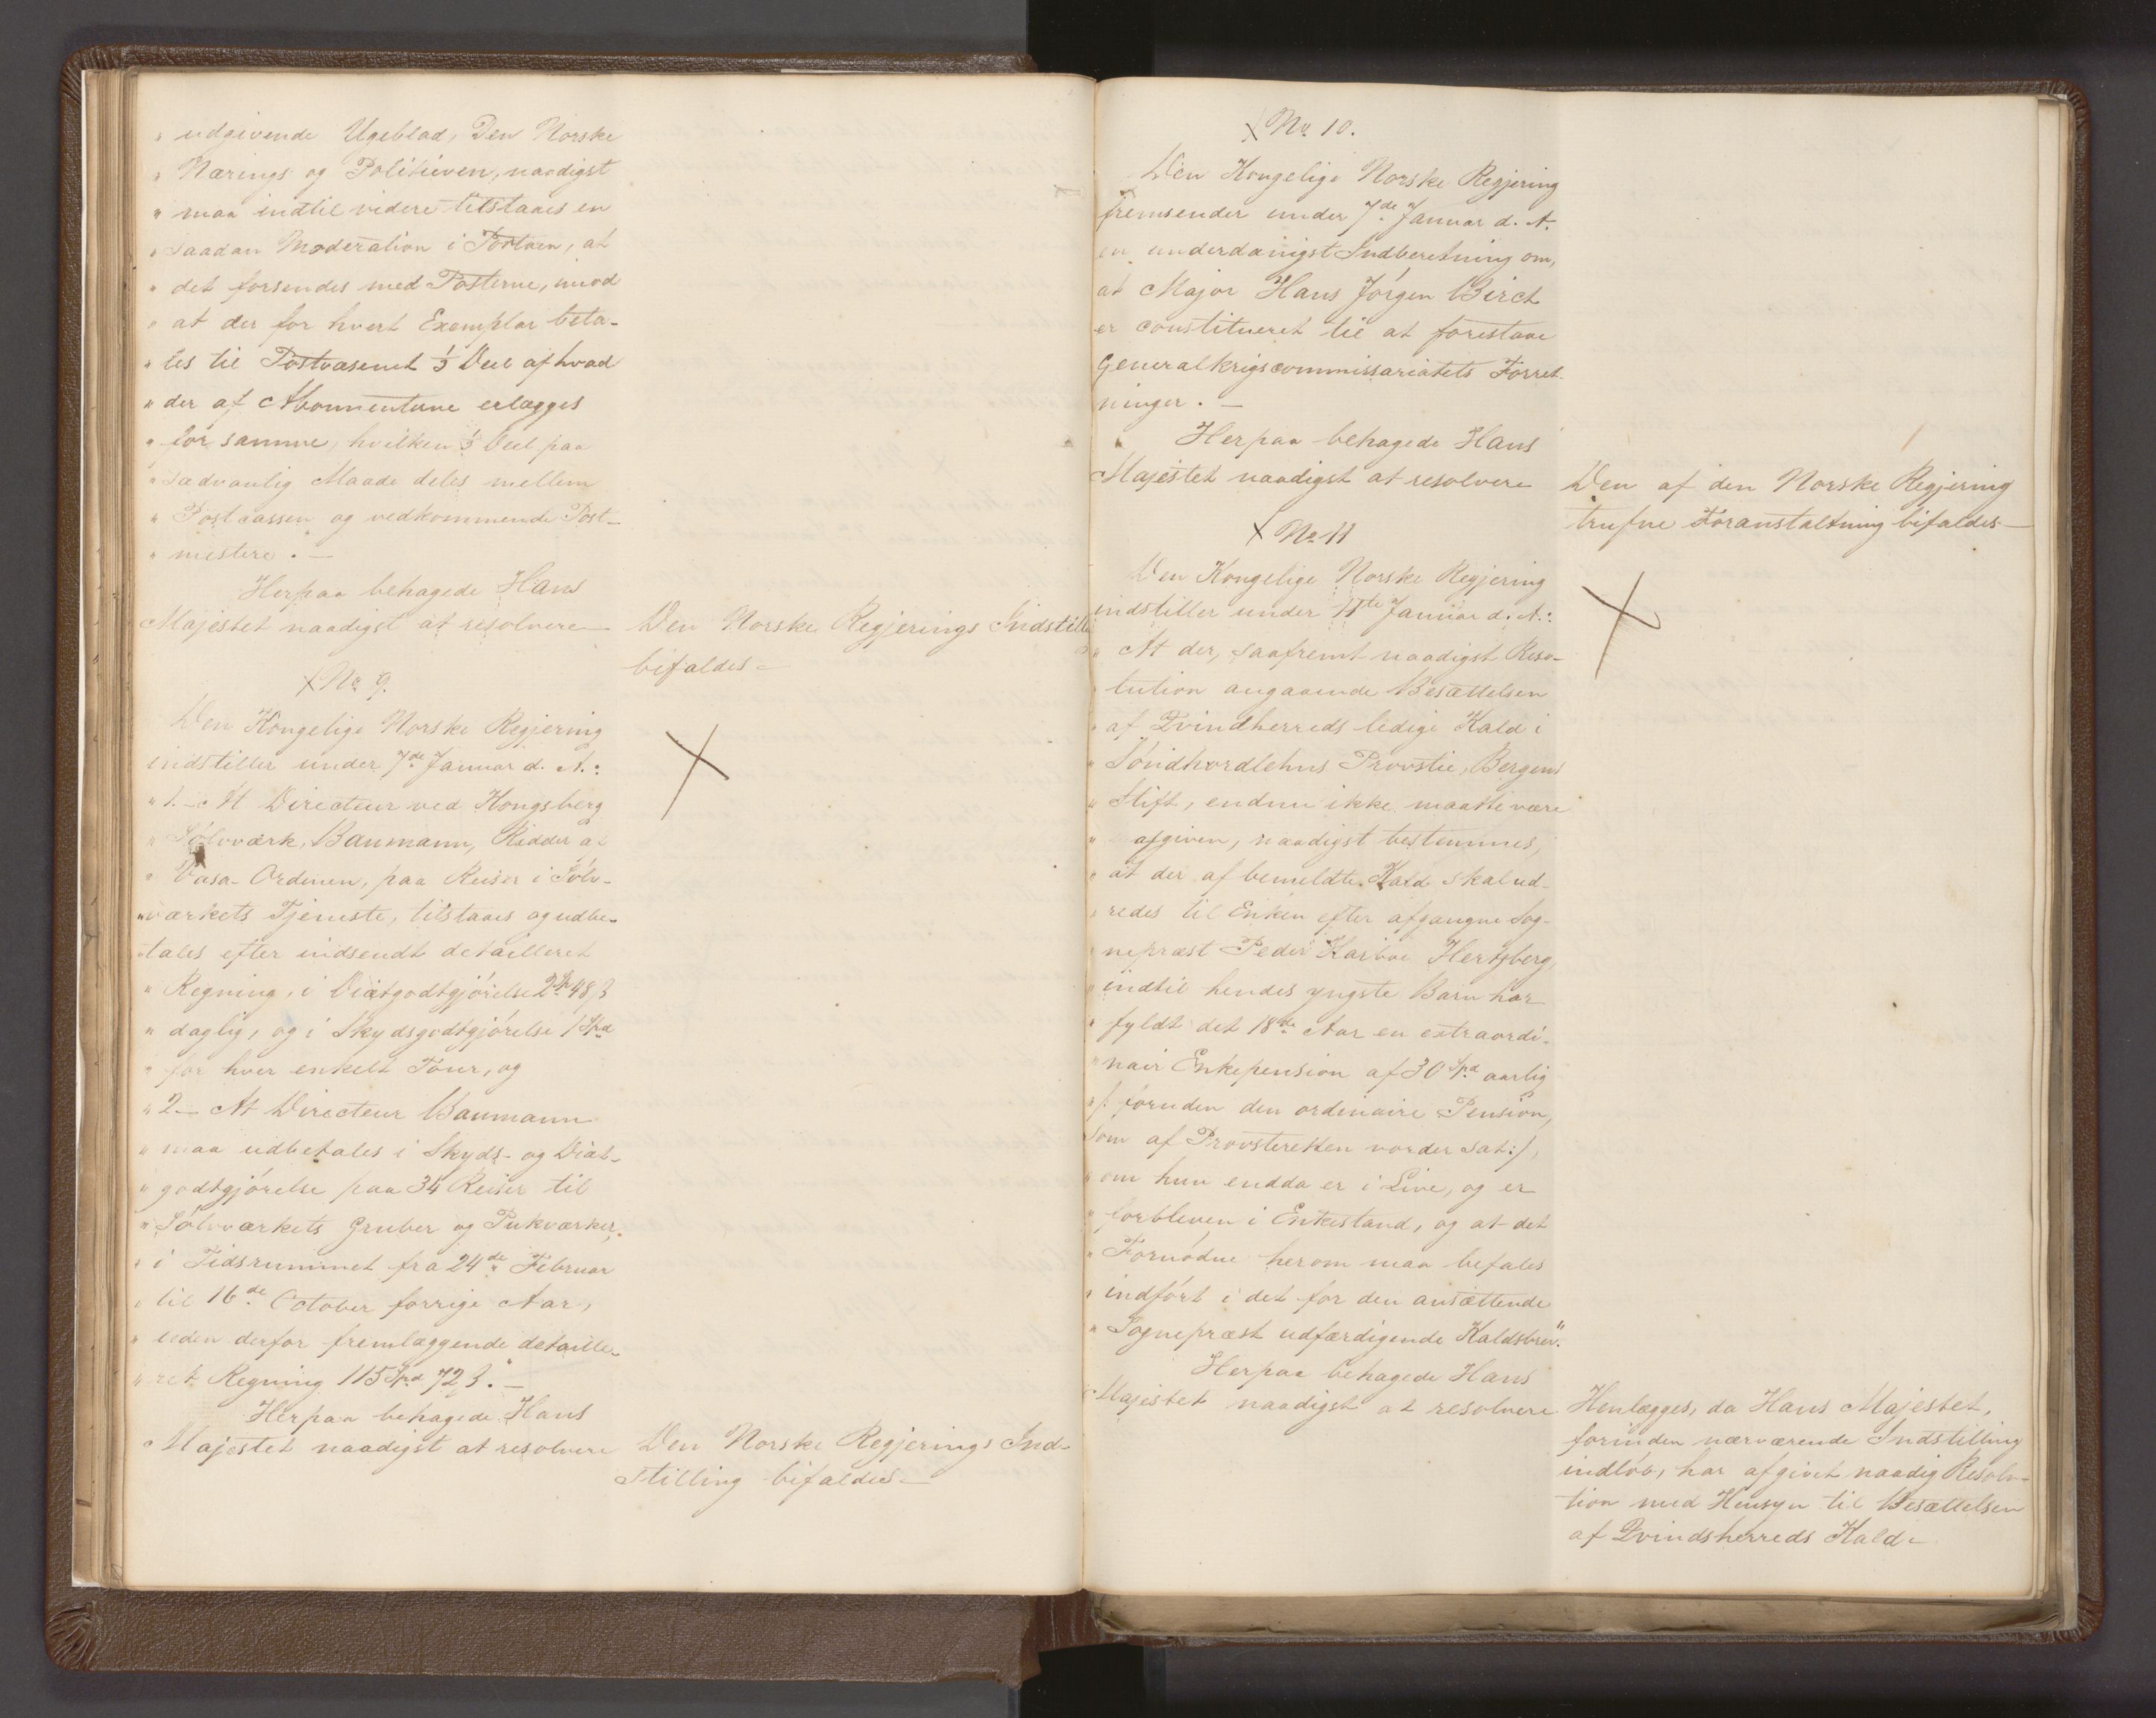 " udgivende Ugeblad, Den Norske
" Nærings og Politieven, naadigst
" maa indtil videre tilstaaes en
" saadan Moderation i Portoen, at
" det forsendes med Posterne, imod
" at der for hvert Exemplar beta-
" les til Postvæsenet 1/3 Deel af hvad
" der af Abonnenterne erlægges
" for samme, hvilken 1/3 Deel paa
" sædvanlig Maade deles mellem
" Postcassen og vedkommende Post-
" mestere. —
Herpaa behagede Hans
Majestet naadigst at resolvere
Den Norske Regjerings Indstill
bifaldes —
X No 9.
Den Kongelige Norske Regjering
indstiller under 7de Januar d. A.:
" 1. – At Directeur ved Kongsberg
" Sølvværk, Baumann, Ridder af
" Vasa-Ordenen, paa Reiser i Sølv-
" værkets Tjeneste, tilstaaes og udbe-
" tales efter indsendt detailleret
" Regning, i Diætgodtgjørelse 2 Spd 48 β
" daglig, og i Skydsgodtgjørelse 1 Spd
" for hver enkelt Tour, og
" 2 – At Directeur Baumann
" maa udbetales i Skyds- og Diæt-
" godtgjørelse paa 34 Reiser til
" Sølvværkets Gruber og Pukværker,
" i Tidsrummet fra 24de Februar
" til 16de October forrige Aar,
" uden derfor fremlæggende detaille-
" ret Regning 115 Spd 72 β." —
Herpaa behagede Hans
Majestet naadigst at resolvere
Den Norske Regjerings Ind-
stilling bifaldes —
X No 10.
Den Kongelige Norske Regjering
fremsender under 7de Januar d. A.
en underdanigst Indberetning om,
at Major Hans Jørgen Birch
er constitueret til at forestaae
Generalkrigscommissariatets Forret-
ninger. —
Herpaa behagede Hans
Majestet naadigst at resolvere
Den af den Norske Regjering
trufne Foranstaltning bifaldes —
X No 11
Den Kongelige Norske Regjering
indstiller under 11te Januar d. A.:
" At der, saafremt naadigst Reso-
" lution angaaende Besættelsen
" af Qvindherreds ledige Kald i
" Søndhordlehns Provstie, Bergens
" Stift, endnu ikke maatte være
" afgiven, naadigst bestemmes,
" at der af bemeldte Kald skal ud-
" redes til Enken efter afgangne Sog-
" nepræst Peder Harboe Hertzberg,
" indtil hendes yngste Barn har
" fyldt det 18de Aar en extraordi-
" nair Enkepension af 30 Spd aarlig
" /: foruden den ordinaire Pension,
som af Provsteretten vorder sat:/,
" om hun endda er i Live, og er
" forbleven i Enkestand, og at det
" Fornødne herom maa befales
" indført i det for den ansættende
" Sognepræst udfærdigende Kaldsbrev".
Herpaa behagede Hans
Majestet naadigst at resolvere
Henlægges, da Hans Majestet,
forinden nærværende Indstilling
indløb, har afgivet naadig Resolu-
tion med Hensyn til Besættelsen
af Qvindsherreds Kald —